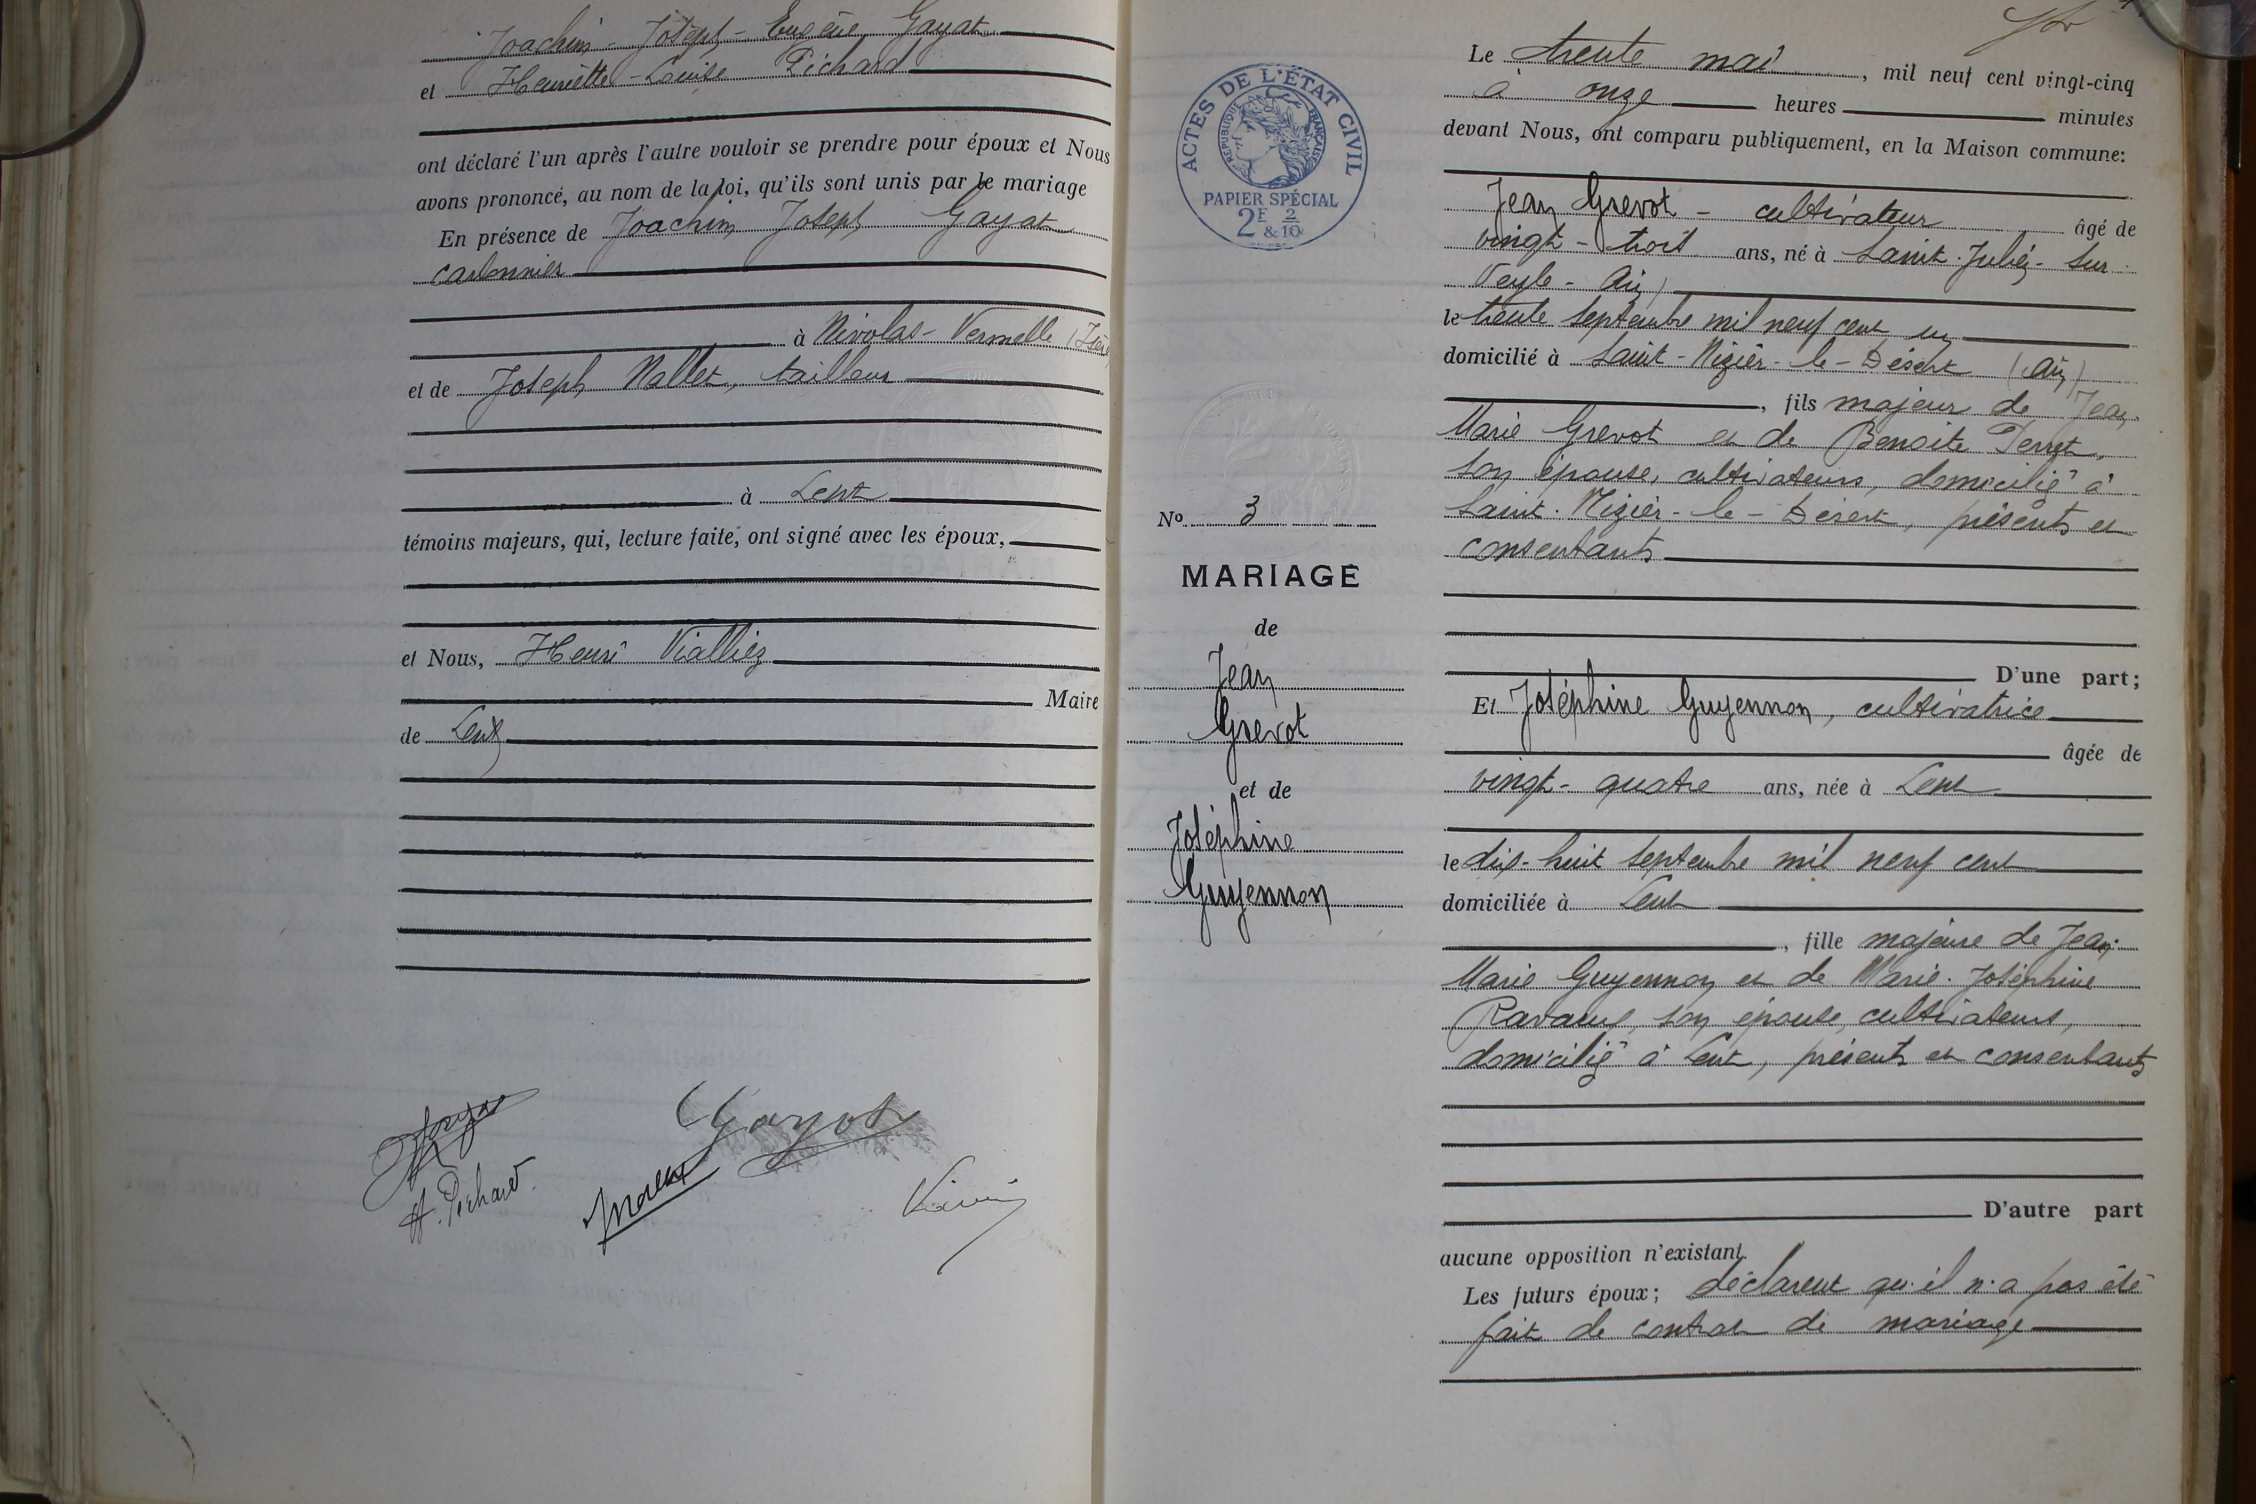 Joachim-Joseph-Eugène Gayat
et Henriette-Louise Pichard
ont déclaré l'un après l'autre vouloir se prendre pour époux et Nous
avons prononcé, au nom de la loi, qu'ils sont unis par le mariage
En présence de Joachim Joseph Gayat
carbonnier
à Nivolas-Vermelle (Isère
et de Joseph Nallet, tailleur
à Lent
témoins majeurs, qui, lecture faite, ont signé avec les époux,
et Nous, Henri Viallier
Maire
de Lent
Gayat
H. Pichard
ACTES DE L'ÉTAT CIVIL
RÉPUBLIQUE FRANÇAISE
PAPIER SPÉCIAL
2F & 2/10
No 3
MARIAGE
de
Jean
Grevot
et de
Joséphine
Guyennon
Le trente mai, mil neuf cent vingt-cinq
à onze heures minutes
devant Nous, ont comparu publiquement, en la Maison commune:
Jean Grevot - cultivateur âgé de
vingt-trois ans, né à Saint-Julien-sur
Veyle-Ain)
le trente septembre mil neuf cent un
domicilié à Saint-Nizier-le-Désert (Ain)
, fils majeur de Jean
Marie Grevot et de Benoite Perret,
son épouse, cultivateurs, domicilié à
Saint-Nizier-le-Désert, présents et
consentants
D'une part;
Et Joséphine Guyennon, cultivatrice
âgée de
vingt-quatre ans, née à Lent
le dix-huit septembre mil neuf cent
domiciliée à Lent
, fille majeure de Jean-
Marie Guyennon et de Marie-Joséphine
son épouse, cultivateurs,
domicilié à Lent, présents et consentants
D'autre part
aucune opposition n'existant.
Les futurs époux; déclarent qu'il n'a pas été
fait de contrat de mariage